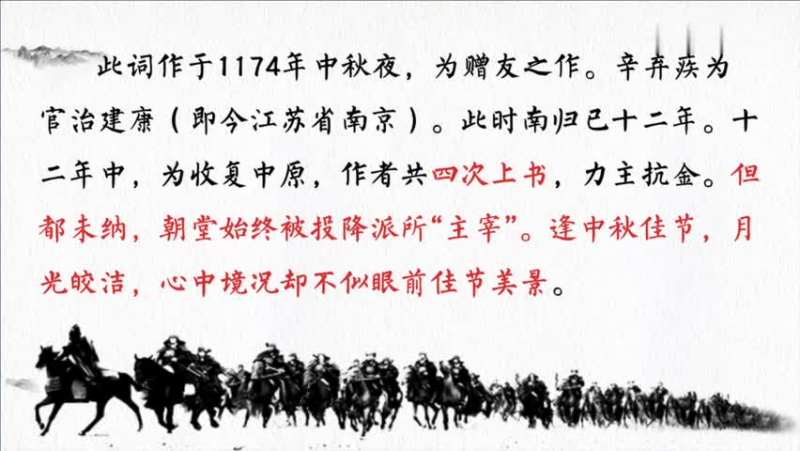 此词作于1174年中秋夜，为赠友之作。辛弃疾为
官治建康（即今江苏省南京）。此时南归已十二年。十
二年中，为收复中原，作者共四次上书，力主抗金。但
都未纳，朝堂始终被投降派所“主宰”。逢中秋佳节，月
光皎洁，心中境况却不似眼前佳节美景。